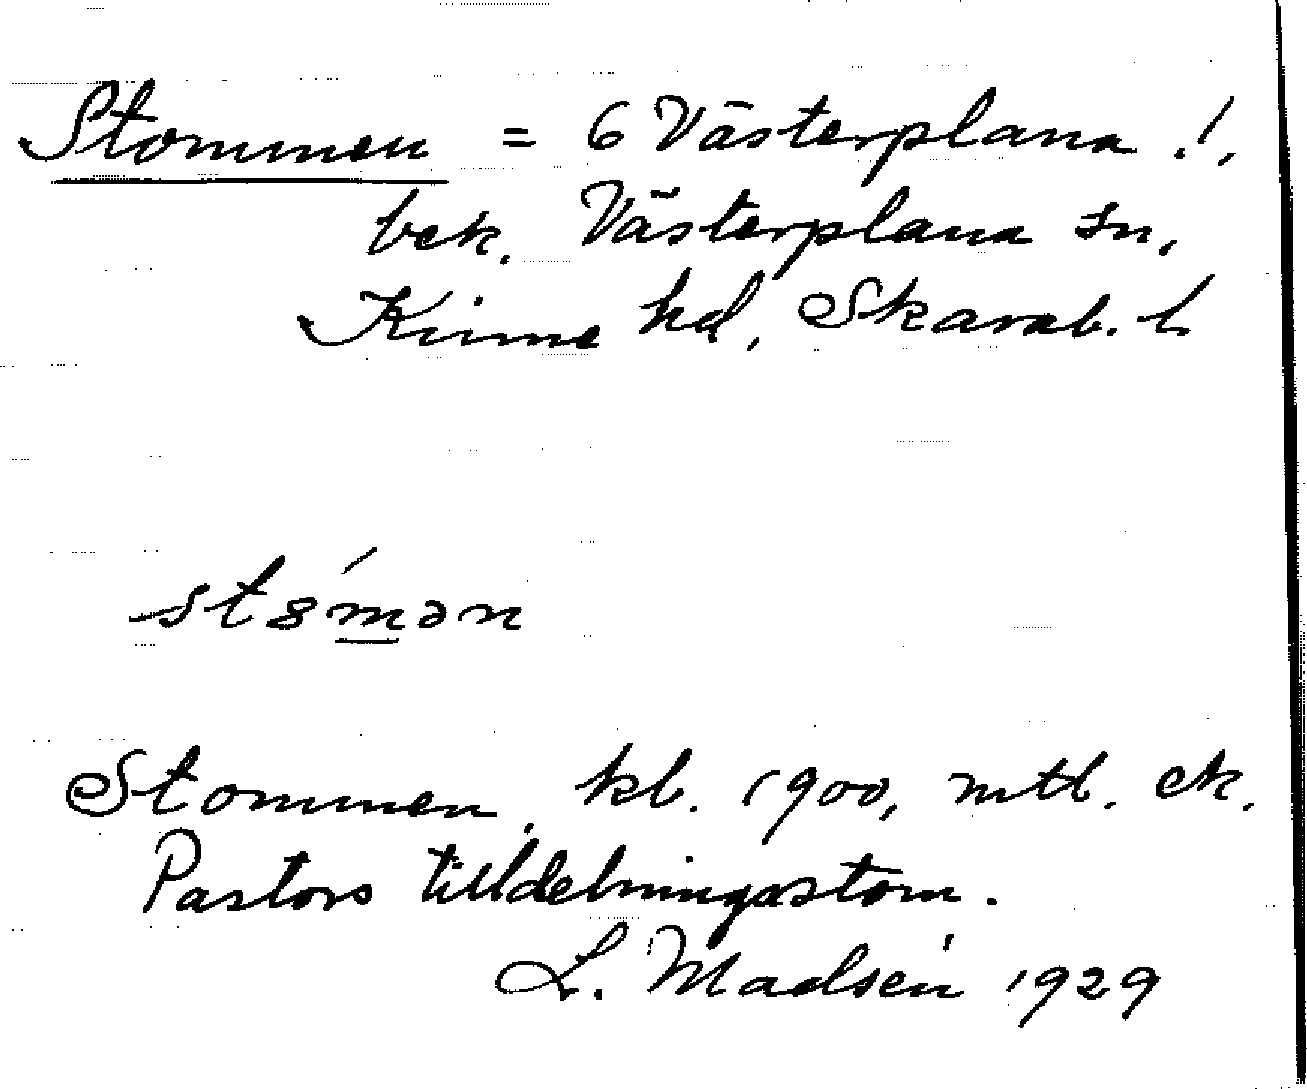 Stommen = 6 Västerplana !,
bek. Västerplana sn,
Kinne hd, Skarab. l.
st8́m̲ən
Stommen, kb. 1900, mtl. ek.
Pastors tilldelningsstom.
L. Madsén 1929